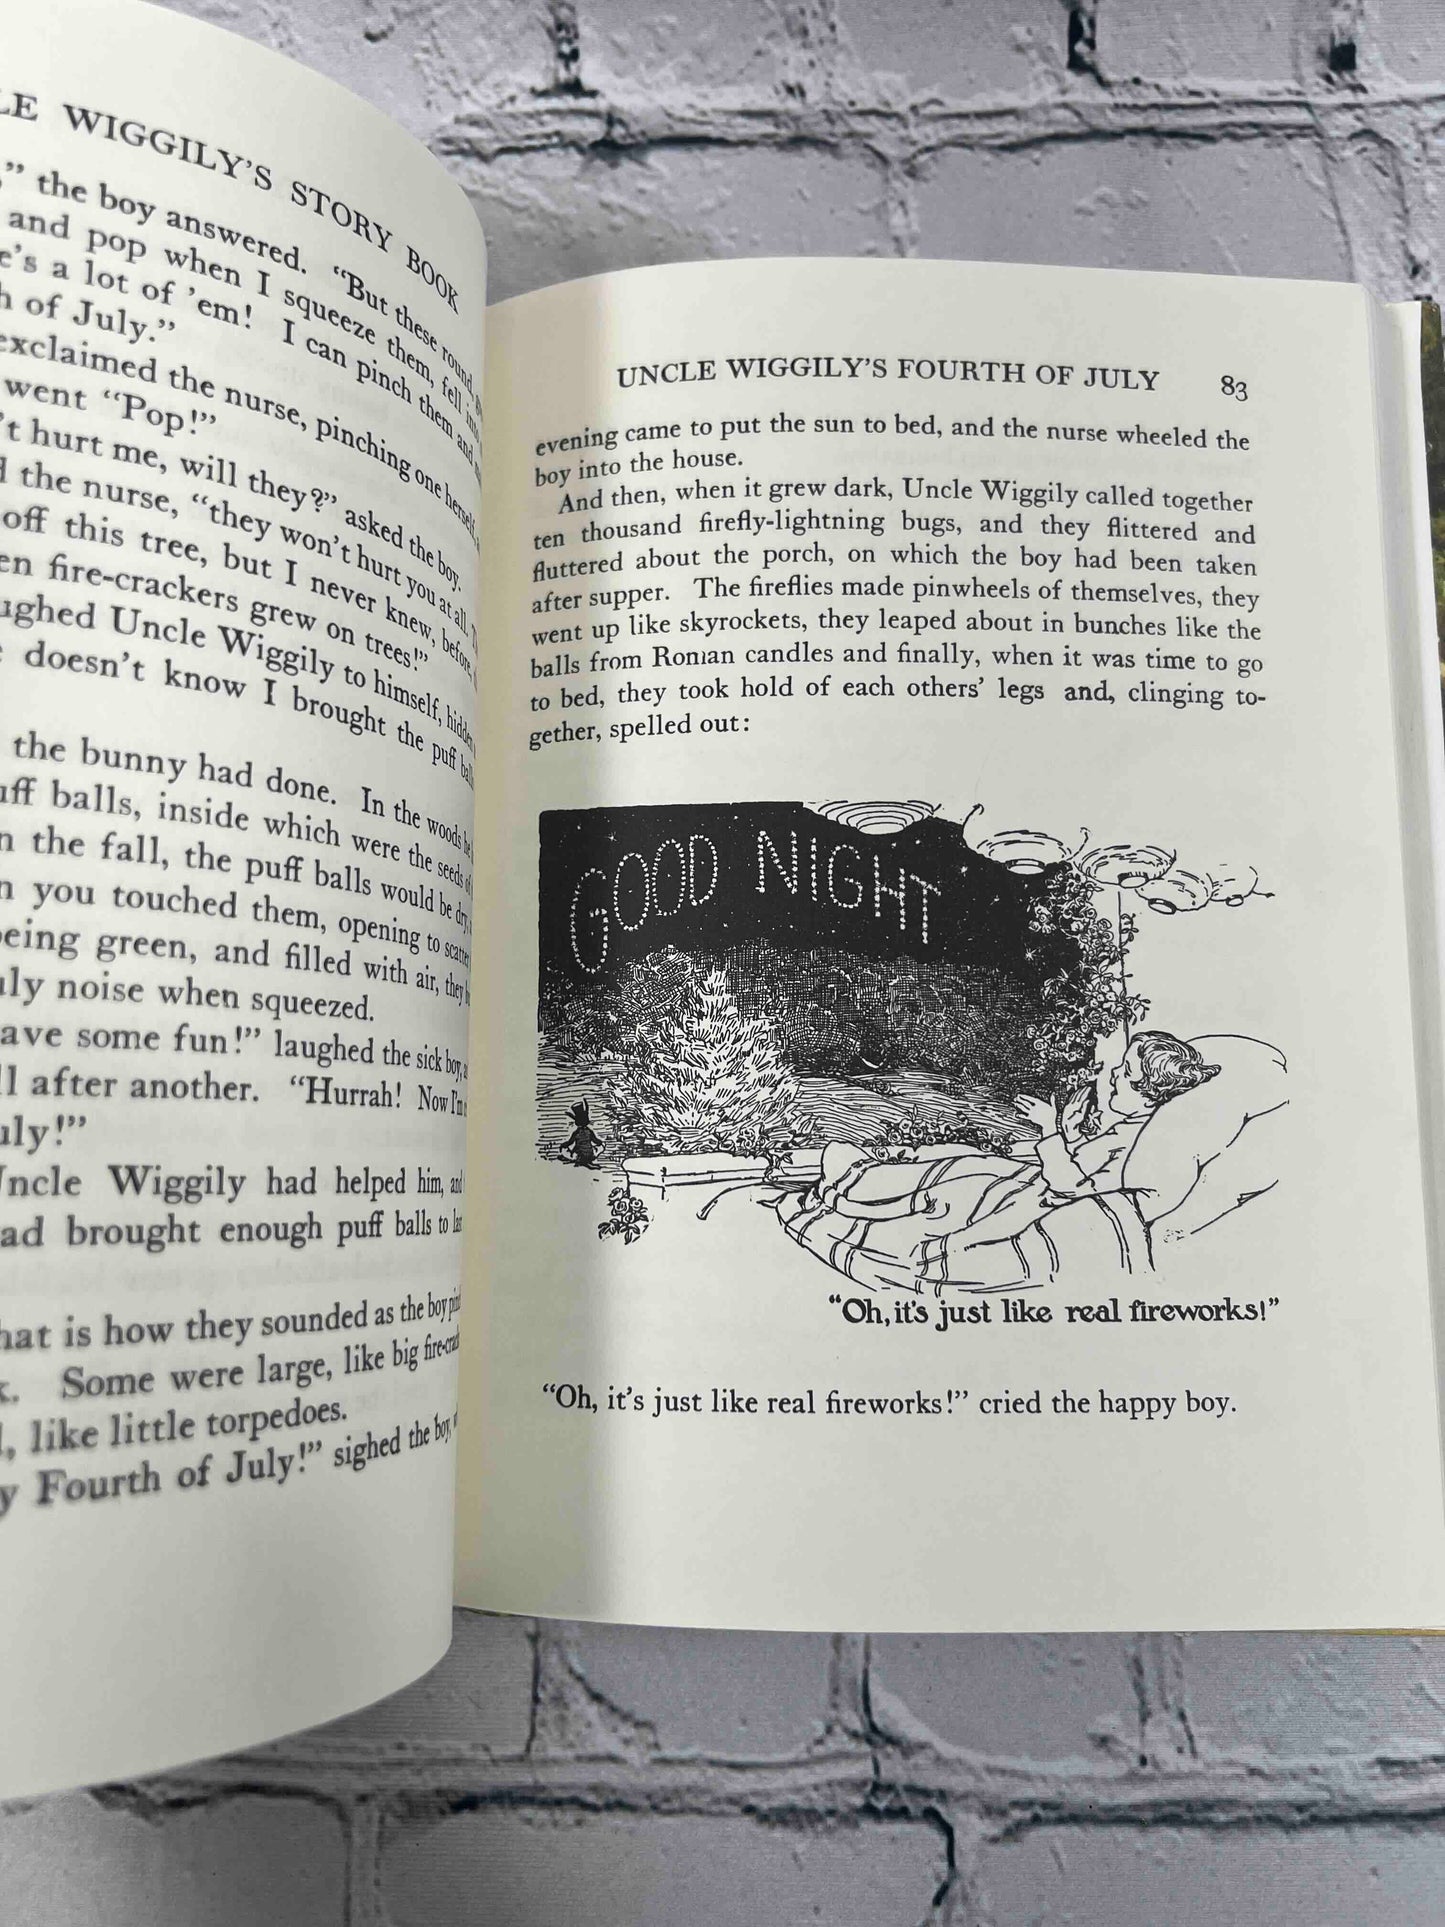 WIGGILY'S STORY BOOK
" the boy answered. "But these round,
and pop when I squeeze them, fell into
a lot of 'em! I can pinch them and
of July."
exclaimed the nurse, pinching one herself,
went "Pop!"
hurt me, will they?" asked the boy.
the nurse, "they won't hurt you at all.
off this tree, but I never knew, before,
fire-crackers grew on trees!"
Uncle Wiggily to himself, hidden
doesn't know I brought the puff
the bunny had done. In the woods he
balls, inside which were the seeds of
the fall, the puff balls would be dry,
you touched them, opening to scatter
being green, and filled with air, they
noise when squeezed.
some fun!" laughed the sick boy,
after another. "Hurrah! Now I'm
Uncle Wiggily had helped him, and
brought enough puff balls to last
is how they sounded as the boy
Some were large, like big
like little torpedoes.
Fourth of July!" sighed the boy,
UNCLE WIGGILY'S FOURTH OF JULY 83
evening came to put the sun to bed, and the nurse wheeled the
boy into the house.
And then, when it grew dark, Uncle Wiggily called together
ten thousand firefly-lightning bugs, and they flittered and
fluttered about the porch, on which the boy had been taken
after supper. The fireflies made pinwheels of themselves, they
went up like skyrockets, they leaped about in bunches like the
balls from Roman candles and finally, when it was time to go
to bed, they took hold of each others' legs and, clinging to-
gether, spelled out:
GOOD NIGHT
"Oh, it's just like real fireworks!"
"Oh, it's just like real fireworks!" cried the happy boy.